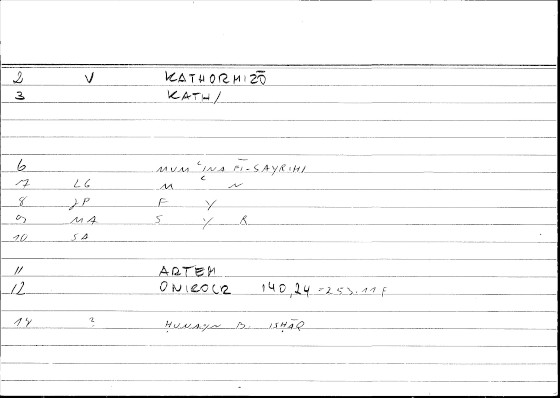 2 V KATHORMIZŌ
3 KATH/
6 MUMʿINA FĪ-SAYRIHI
7 LG M ʿ N
8 JP F Y
9 MA S Y R
10 SA
11 ARTEM
12 ONIROCR 140,24 = 253.11 F
14 ? ḤUNAYN B. ISḤĀQ